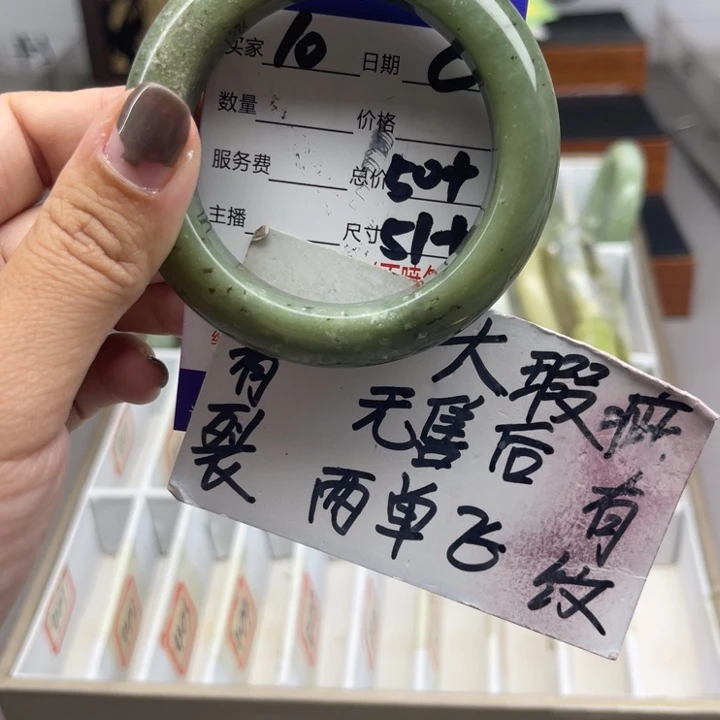 买家 10 日期
数量 价格
服务费 总价 50+
主播 尺寸 51+
有裂
大瑕疵
无售后
两单飞
有纹